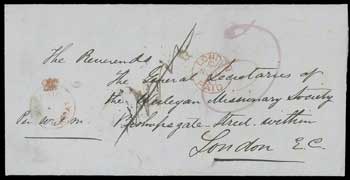 The Reverends
The General Secretaries of
the Wesleyan Missionary Society
Bishopsgate Street within
London E.C.